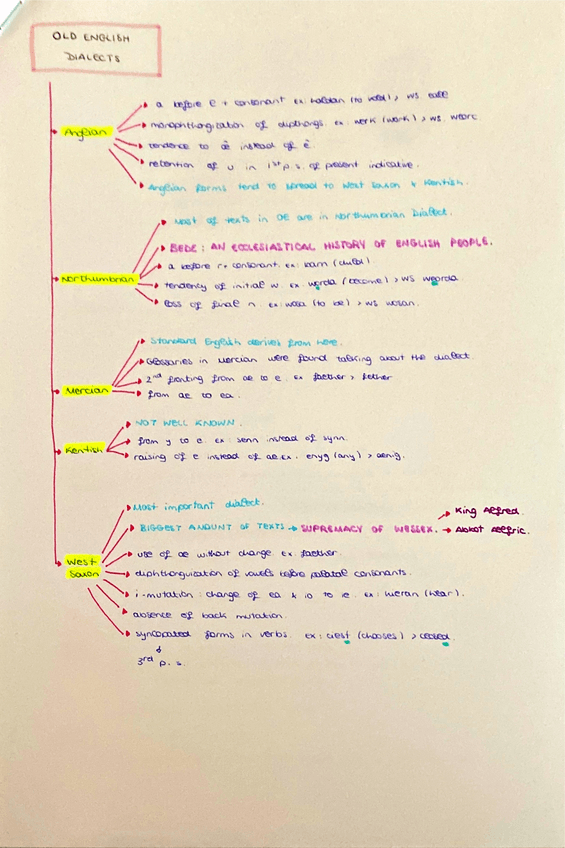 OLD ENGLISH
DIALECTS
Anglian
a before l + consonant ex: haldan (to hold) > WS
monophthongization of dipthongs. ex: werk (work) > WS weorc.
tendence to instead of
retention of u in 1st p.s. of present indicative.
Anglian forms tend to spread to West Saxon & Kentish.
Northumbrian
Most of texts in OE are in Northumbrian Dialect.
BEDE: AN ECCLESIASTICAL HISTORY OF ENGLISH PEOPLE.
a before r + consonant. ex: barn (child)
tendency of initial w. ex: worda (become) > WS weorda
loss of final n. ex: wosa (to be) > WS wosan.
Mercian
Standard English derives from here.
Glossaries in Mercian were found talking about the dialect.
2nd fronting from ae to e. ex faether > fether
from ae to ea.
Kentish
NOT WELL KNOWN.
from y to e. ex: senn instead of synn.
raising of e instead of ae. ex. enyg (any) > aenig.
West
Saxon
Most important dialect.
BIGGEST AMOUNT OF TEXTS → SUPREMACY OF WESSEX.
King Aelfred.
Abbot Aelfric.
use of ae without change. ex: faether.
diphthonguization of vowels before palatal consonants.
i-mutation: change of ea & io to ie. ex: hieran (hear).
absence of back mutation.
syncopated forms in verbs. ex: ciest (chooses) >
3rd p. s.